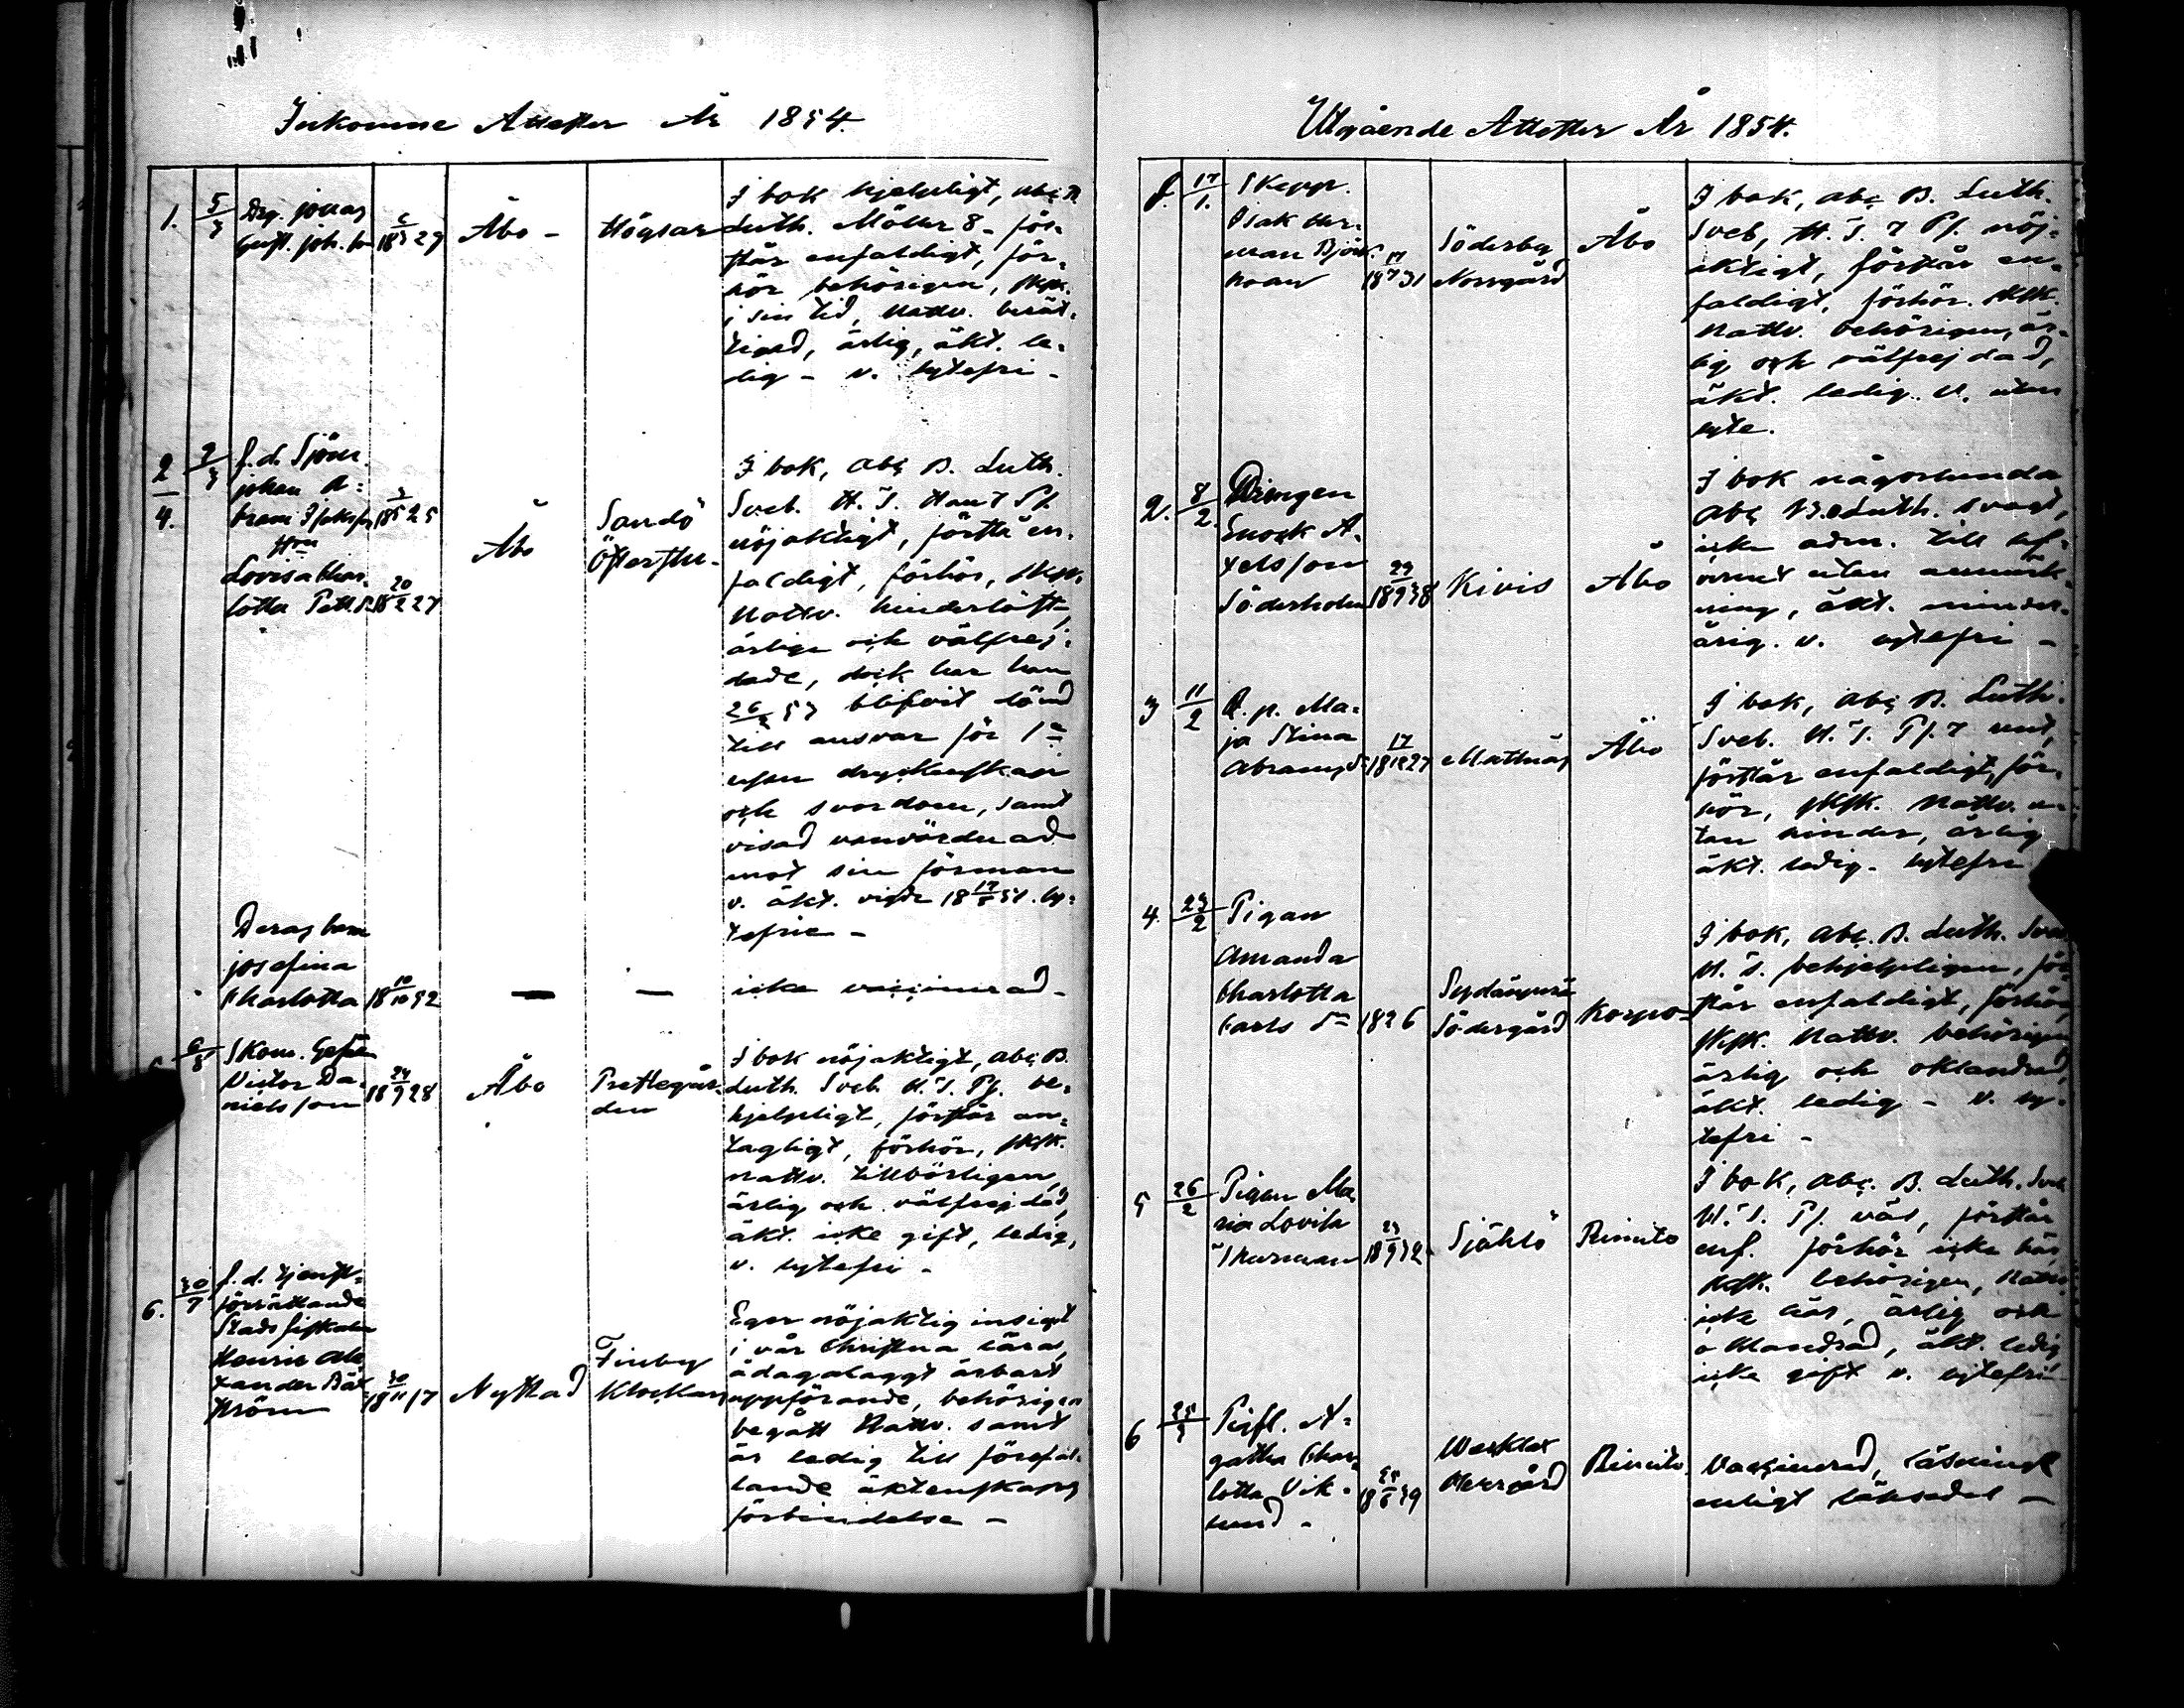 Inkomne Attester År 1854.
1.
5/3
Drg. Jonas
Gust. Joh. sn
18 6/3 29
Åbo -
Högsar
I bok hjelpligt, abc B
Luth. Möller 8 - för-
står enfaldigt, för-
hör behörigen, skr.
i sin tid, nattv. berät-
tigad, ärlig, äkt. le-
dig - v. lytefri -
2
4.
7/3
f.d. Sjöm.
Johan A-
bram Isaksson
18 3/5 25
Hru
Lovisa Char-
lotta Petts dr
18 20/2 27
Åbo
Sandö
Österstu-
I bok, abc B. Luth.
Sveb. H.T. Hant Ps.
nöjaktigt, förstå en-
faldigt, förhör, skr.
Nattv. hinderlöst,
ärliga och välfrej-
dade, dock har han
blifvit dömd
till ansvar för 1a
resan dryckenskap
och svordom, samt
visad vanvördnad
mot sin förman
v. äkt. vigde 18 17/5 51. ly-
tefrie -
Deras barn
Josefina
Charlotta
18 10/10 52
—
—
icke vaccinerad -
6/8
Skom. Ges.
Victor Da-
nielsson
18 24/9 28
Åbo
Prestegår-
den
I bok nöjaktigt, abc B.
Luth. Sveb. H.T. Ps. be-
hjelpligt, förstår an-
tagligt, förhör, skr.
nattv. tillbörligen,
ärlig och välfrejdad,
äkt. icke gift, ledig,
v. lytefri -
6.
30/7
f.d. tjenst-
förrättande
Stadsfiskalen
Henric Alex
xander Bäck
ström
18 30/11 17
Nystad
Finby
Klockars
Eger nöjaktig insigt
i vår Christna lära,
ådagalaggt ärbart
uppförande, behörigen
begått Nattv. samt
är ledig till förefal-
lande äktenskaps
förbindelse -
Utgående Attester År 1854.
1.
17/1.
Skeppr.
Isak Her-
man Björk-
man
18 17/7 31
Söderby
Norrgård
Åbo
I bok, abc B. Luth.
Sveb, H.T. 7 Ps. nöj-
aktigt, förstår en-
faldigt, förhör. skr.
Nattv. behörigen, är-
lig och välfrejdad,
äkt. ledig. v. utan
lyte.
2.
8/2.
Drengen
Enock A-
xelsson
Söderholm
18 29/9 38
Kivis
Åbo
I bok någorlunda
abc B. Luth. svagt,
icke adm. till
utan anmärk-
ning, äkt. minder-
årig. v. lytefri -
3
11/2
A. p. Ma-
ja Stina
Abrams dr
18 17/12 27
Mattnäs
Åbo
I bok, abc B. Luth.
Sveb. H.T. Ps. 7 unt,
förstår enfaldigt, för-
hör, skr. Nattv. u-
tan hinder, ärlig
äkt. ledig - lytefri
4.
23/2
Pigan
Amanda
Charlotta
Carls dr
1826
Södergård
Korpo -
I bok, abc. B. Luth. Sveb
H.T. behjelpligen, för-
står enfaldigt, förhör,
skr. Nattv. behörigen
ärlig och oklandrad,
äkt. ledig - v. ly-
tefri -
5
26/2
Pigan Ma-
ria Lovisa
Skurman
18 23/9 32
Själö
Rimito
I bok, abc. B. Luth. Sveb
H.T. Ps. väl, förstår
enf. förhör icke här
skr. behörigen, Nattv.
icke här, ärlig och
oklandrad, äkt. ledig
icke gift v. lytefri
6
25/3
Pigfl. A-
gatha Char-
lotta Vik-
lund -
18 25/6 39
Wäsklax
Herrgård
Rimito.
Vaccinerad, läskunnig
enligt läksedel -